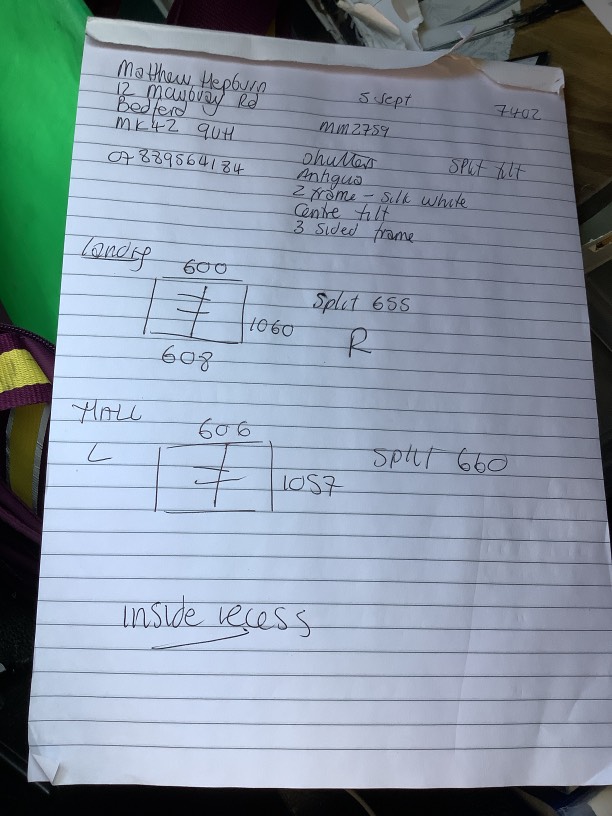 Matthew Hepburn
12 maybury Rd
Bedford
MK42 9UH
07889564184
5 Sept
7402
mm2759
shutters
Split tilt
Antigua
Z frame - silk white
Centre tilt
3 sided frame
600
Split 655
1060
R
608
HALL
606
L
Split 660
1057
inside recess